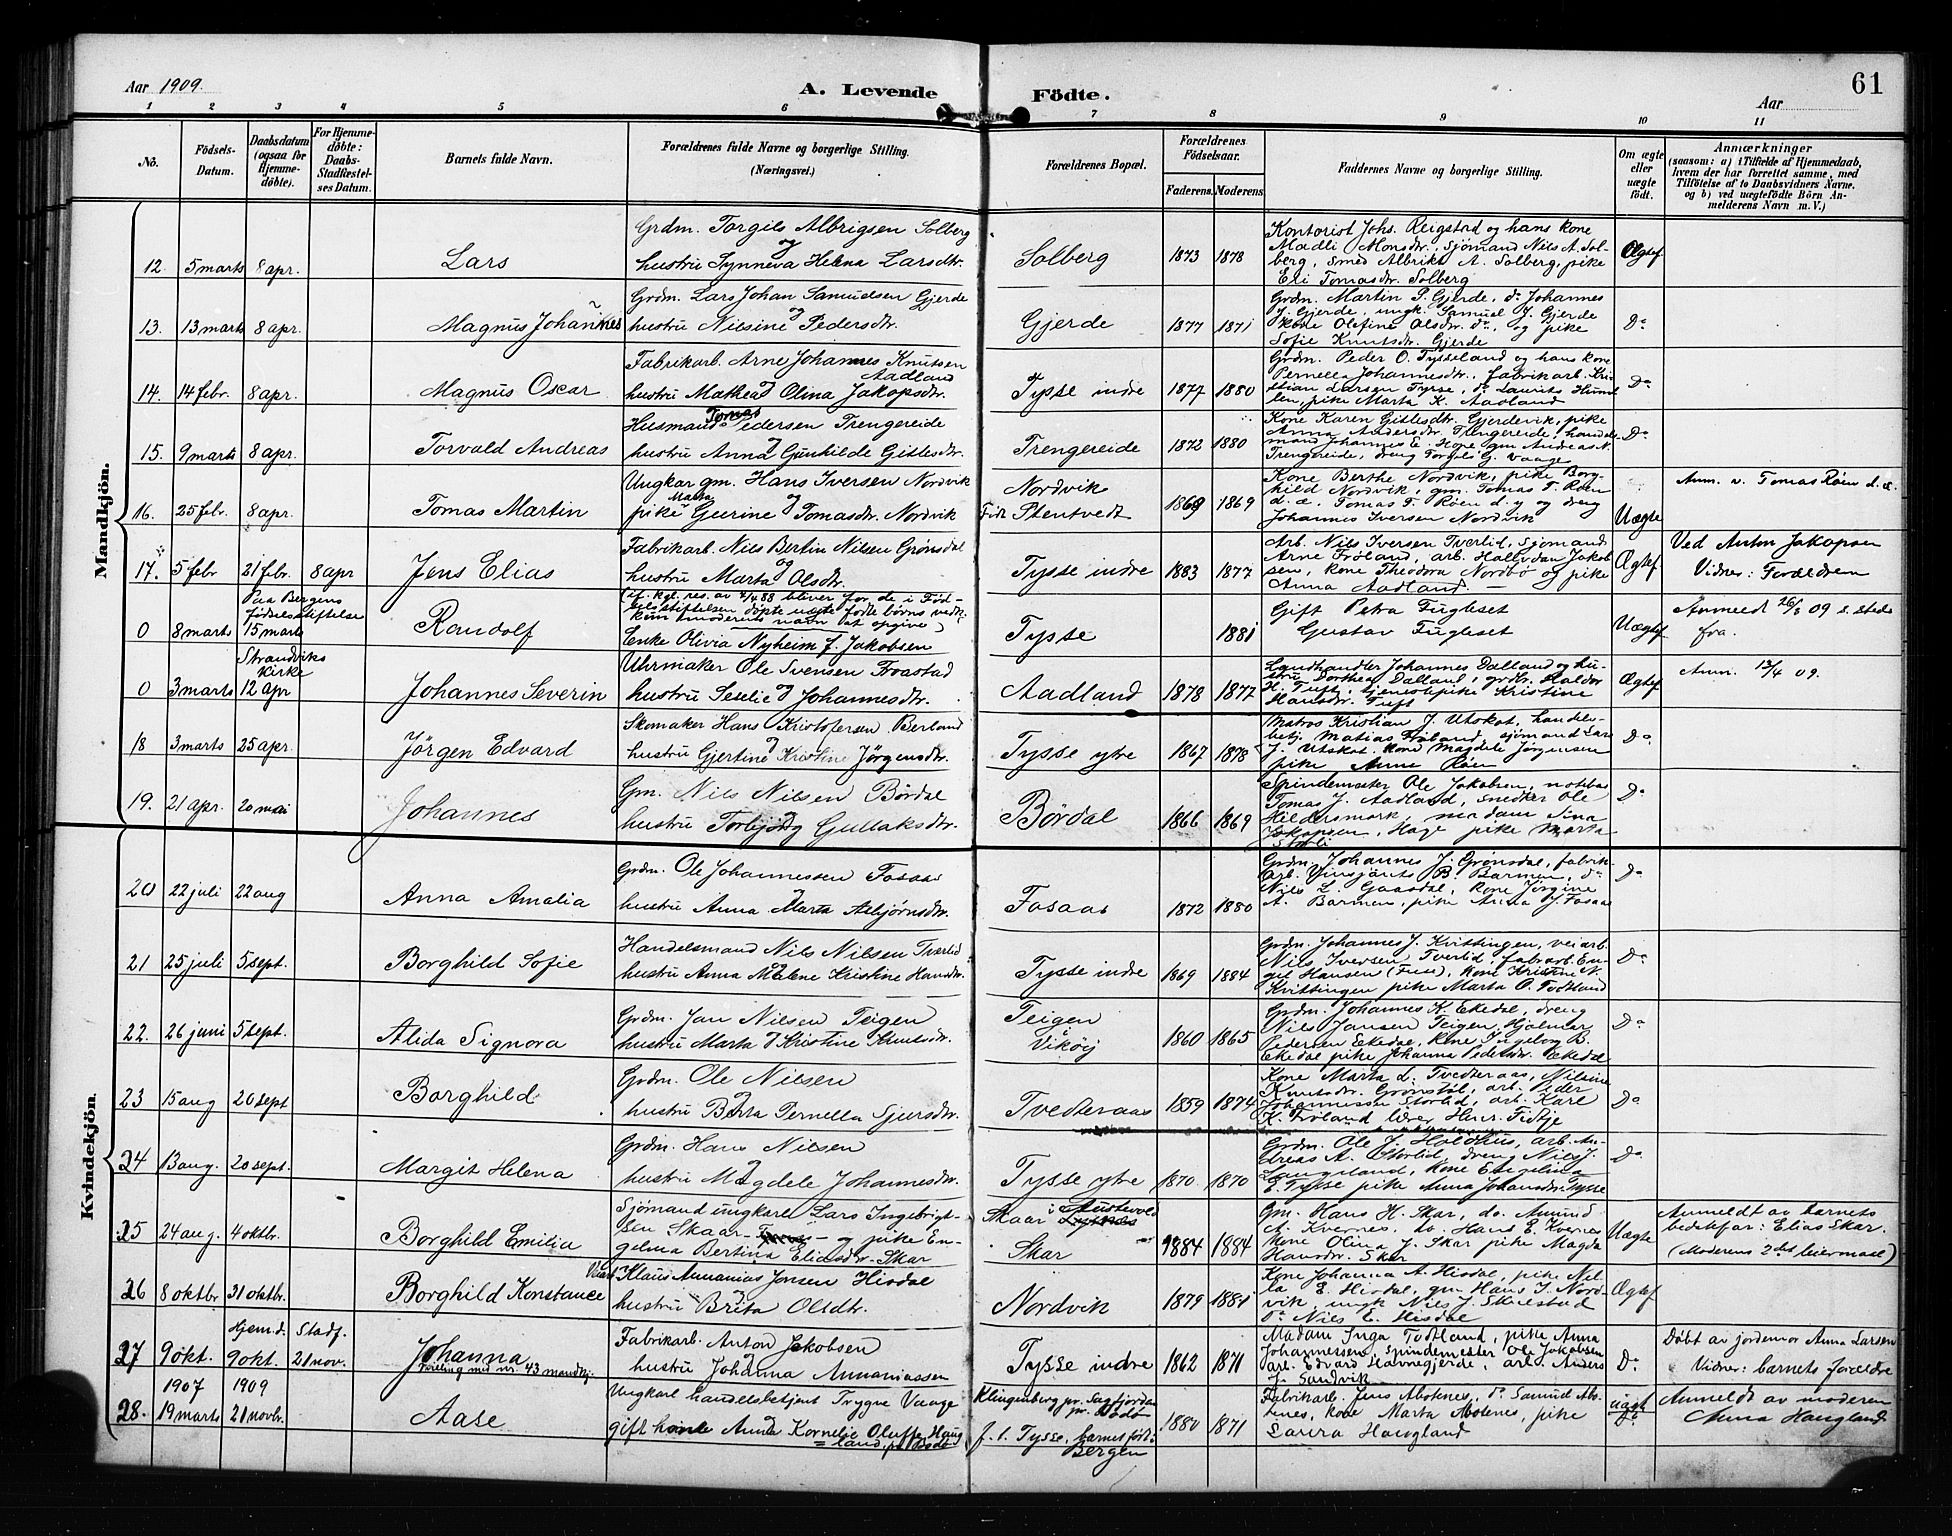 Aar 1909.
A. Levende Födte.
61
Aar
1 2 3 4 5 6 7 8 9 10 11
No.
Födsels-
Datum.
Daabsdatum
(ogsaa for
Hjemme-
döbte).
For Hjemme-
döbte:
Daabs-
Stadfæstel-
ses Datum.
Barnets fulde Navn.
Forældrenes fulde Navne og borgerlige Stilling.
(Næringsvei.)
Forældrenes Bopæl.
Forældrenes
Födselsaar.
Faderens. Moderens.
Faddernes Navne og borgerlige Stilling.
Om ægte
eller
uægte
født.
Anmærkninger
(saasom: a) i Tilfælde af Hjemmedaab,
hvem der har forrettet samme, med
Tilföielse af to Daabsvidners Navne.
og b) ved uægtefödte Börn An-
melderens Navn m. V.)
Mandkjön.
12. 5 marts 8 apr. Lars
Grdm. Torgils Albrigsen Solberg
og
hustru Synneva Helena Larsdtr.
Solberg 1873 1878
Kontorist Johs. Reigstad og hans kone
Madli Monsdtr. Sjømand Nils A. Sol-
berg, smed Albrikt A. Solberg, pike
Eli Tomasdtr. Solberg
Ægtef.
13. 13 marts 8 apr. Magnus Johannes
Grdm. Lars Johan Samuelsen Gjerde
og
hustru Nilsine Pedersdtr.
Gjerde 1877 1871
Grdm. Martin P. Gjerde, do Johannes
J. Gjerde, ungk. Samuel J. Gjerde
kone Olefine Olsdtr. do, og pike
Sofie Knutsdtr. Gjerde
Do
14. 14 febr. 8 apr. Magnus Oscar
Fabrikarb. Arne Johannes Knutsen
Aadland
hustru Mathea Olina Jakopsdtr.
Tysse indre 1877 1880
Grdm. Peder O. Tysseland og hans kone
Pernella Johannesdtr. Fabrikarb. Kri-
stian Larsen Tysse, do Laurits
pike Marta K. Aadland
Do
15. 9 marts 8 apr. Torvald Andreas
Tomas
Husmand Pedersen Trengereide
hustru Anna Gunhilde Gitlesdtr.
Trengereide 1872 1880
Kone Karen Gitlesdtr. Gjerdevik, pike
Anna Andersdtr. Trengereide, handels-
mand Johannes E. Hope gm Andreas N.
Trengereide, dreng Torgils G. Vaage
Do
16. 25 febr. 8 apr. Tomas Martin
Ungkar gm. Hans Iversen Nordvik
Marta og
pike Gurine Tomasdtr. Nordvik
Nordvik
Født Stentvedt 1869 1869
Kone Berthe Nordvik, pike Borg-
hild Nordvik, gm. Tomas T. Røen
d. æ. Tomas T. Røen d. y og dreng
Johannes Iversen Nordvik
Uægte
Anm. v. Tomas Røen d. æ.
17. 5 febr 21 febr. 8 apr Jens Elias
Fabrikarb. Nils Bertin Nilsen Grønsdal
og
hustru Marta Olsdtr.
Tysse indre 1883 1877
Arb. Nils Iversen Tverlid, Sjømand
Arne Frøland, arb. Hallvdan Jakob-
sen, kone Theodora Nordbø og pike
Anna Aadland.
Ægtef
Ved Anton Jakopsen
Vidner: Forældrene
Paa Bergens
fødselsstiftelse
0 8 marts 15 marts Randolf
(if. kgl. res. av 7/4 88 bliver for de i Fød-
selsstiftelsen døpte uægte fødte børns vedk.
kun moderens navn at opgive)
Enke Olivia Nyheim f. Jakobsen
Tysse 1881
Gift Petra Fugleset
Gustav Fugleset
Uægtef
Anmeldt 26/3 09 s. steds
fra.
Strandviks
Kirke
0 3 marts 12 apr Johannes Severin
Uhrmaker Ole Svensen Froastad
hustru Seselie Johannesdtr.
Aadland 1878 1877
Landhandler Johannes Dalland og hu-
stru Dorthea Dalland, grdbr. Haldor
H. Tuft, tjenestepike Kristine
Hansdtr. Tuft
Ægtef
Anm. 13/4 09.
18 3 marts 25 apr. Jörgen Edvard
Skomaker Hans Kristofersen Berland
hustru Gjertine Kristine Jörgensdtr.
Tysse ytre 1867 1878
Matros Kristian J. Utskot, handels-
betj. Matias Frøland, sjømand Lars
J. Utskot, kone Magdele Jørgensen
pike Anne Røen
Do
19. 21 apr. 20 mai Johannes
Gm. Nils Nilsen Bördal
hustru Torbjörg Gullaksdtr.
Bördal 1866 1869
Spindemester Ole Jakobsen, notebas
Tomas J. Aadland, snedker Ole
Hildersmark, madam Sina
Jakopsen, Hage pike Marta
Storli
Do
Kvindekjön.
20 22 juli 22 aug Anna Amalia
Grdm. Ole Johannessen Fosaas
hustru Anna Marta Asbjørnsdtr.
Fosaas 1872 1880
Grdm. Johannes J. Grønsdal, fabrik-
arb. B. Barmen, do
Nils L. Gaasdal, kone Jørgine
A. Barmen, pike Anna J. Fosaas
Do
21 25 juli 5 sept. Borghild Sofie
Handelsmand Nils Nilsen Tverlid
hustru Anna Malene Kristine Hansdtr.
Tysse indre 1869 1884
Grdm. Johannes J. Kvittingen, veiarb.
Nils Iversen Tverlid, fabarb. En-
gel Hansen (Fuse), kone Kristine N.
Kvittingen pike Marta O. Todtland
Do
22. 26 juni 5 sept. Alida Signora
Grdm. Jan Nilsen Teigen
hustru Marta Kristine Knutsdtr.
Teigen
i
Vikøy 1860 1865
Grdm. Johannes K. Ekedal, dreng
Nils Jansen Teigen, Hjalmar
Pedersen Ekedal, kone Ingeborg B.
Ekedal pike Johanna Pedersdtr. Ekedal
Do
23 15 aug 20 sept Borghild
Grdm. Ole Nilsen
hustru Berta Pernella Sjursdtr.
Tvedteraas 1859 1874
Kone Marta d. Tvedteraas, Nilsine
Knutsdtr. Grønstøl, arb. Peder
Johannessen Storlid, arb. Karl
K. Frøland lærer Henr. Fidtje
Do
24 13 aug. 20 sept. Margit Helena
Grdm. Hans Nilsen
hustru Magdele Johannesdtr.
Tysse ytre 1870. 1870
Grdm. Ole J. Holdhus, arb. An-
dreas A. Storlid, dreng Nils J.
Langeland, kone Engelina
E. Tysse pike Anna Johansdtr. Tysse
Do
25 24 aug. 4 oktbr. Borghild Emilia
Sjømand ungkarl Lars Ingebrigt-
sen Skaar og pike En-
gelma Bertina Eliasdtr. Skar
Skaar i Austevold
Skar 1884 1884
Gm. Hans H. Skar, do. Amund
A. Kvernes, do. Hans E. Kvernes
kone Olina J. Skar pike Magda
Hansdtr. Skar
Uægte
Anmeldt av barnets
bedstefar: Elias Skar.
(Moderens 2det leiermaal)
26 8 oktbr 31 oktbr. Borghild Konstance
Klaus Annanias Jensen Hisdal
hustru Brita Olsdtr.
Nordvik 1879 1881
Kone Johanna A. Hisdal, pike Nil-
la E. Hisdal, gm. Hans J. Nord-
vik, ungk Nils J. Skulestad
do Nils E. Hisdal
Ægtef
Hjem.d. Stadf.
27 9 okt. 9 okt. 21 nov. Johanna
Tvilling med nr. 43 mandkj.
Fabrikarb. Anton Jakobsen
hustru Johanna Annaniassen
Tysse indre 1862 1871
Madam Inga Todtland, pike Anna
Johannessen, spindemester Ole Jakobsen
arb. Edvard Havnegjerde, arb. Anders
J. Sandvik
Do
Döbt av jordemor Anna Larsen
Vidner: barnets forældre
1907 1909
28. 19 marts 21 novbr. Aase
Ungkarl handelsbetjent Trygve Vaage
gift kone Anna Kornelie Oluffe Haug
=land, p. t. Bodø
Klingenberg pr. Sagfjorden
pr. Bodø
f. t. Tysse, barnet født i
Bergen 1880 1871
Fabrikarb. Jens Abotnes, do Samuel Abo-
tnes, kone Marta Abotnes, pike
Laura Haugland
uægt
Anmeldt av moderen
Anna Haugland